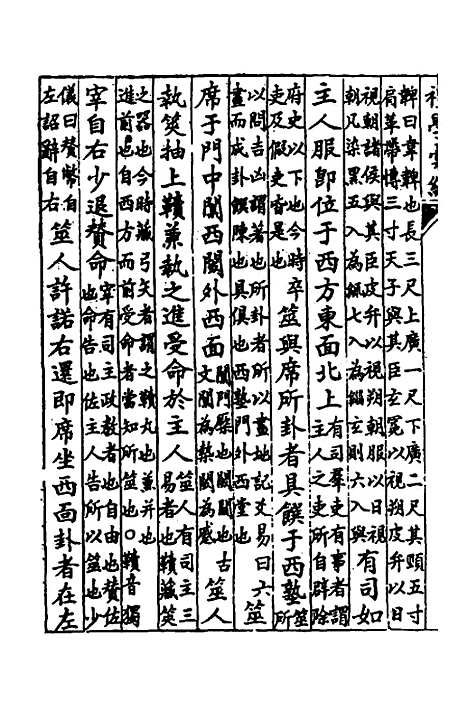 韠曰韋韠也長三尺上廣一尺下廣二尺其頸五寸
肩革帶博三寸天子與其臣玄冕以視朔皮弁以日
視朝諸侯與其臣皮弁以視朔朝服以日視
朝凡染黑五入為緅七入為緇玄則六入與
有司如
主人服即位于西方東面北上
有司羣吏有事者謂
主人之吏所自辟除
府史以下也今時卒
吏及假吏皆是也
筮與席所卦者具饌于西塾
筮
所
以問吉凶謂蓍也所卦者所以畫地記爻易曰六
畫而成卦饌陳也具俱也西塾門外西堂也
筮
席于門中闑西閾外西面
闑門橛也閾閫也古
文闑為槷閾為蹙
筮人
執筴抽上韇兼執之進受命於主人
筮人有司主三
易者也韇藏筴
之器也今時藏弓矢者謂之韇丸也兼并也
進前也自西方而前受命者當知所筮也○韇音獨
宰自右少退贊命
宰有司主政教者也自由也贊佐
也命告也佐主人告所以筮也少
儀曰贊幣自
左詔辭自右
筮人許諾右還即席坐西面卦者在左